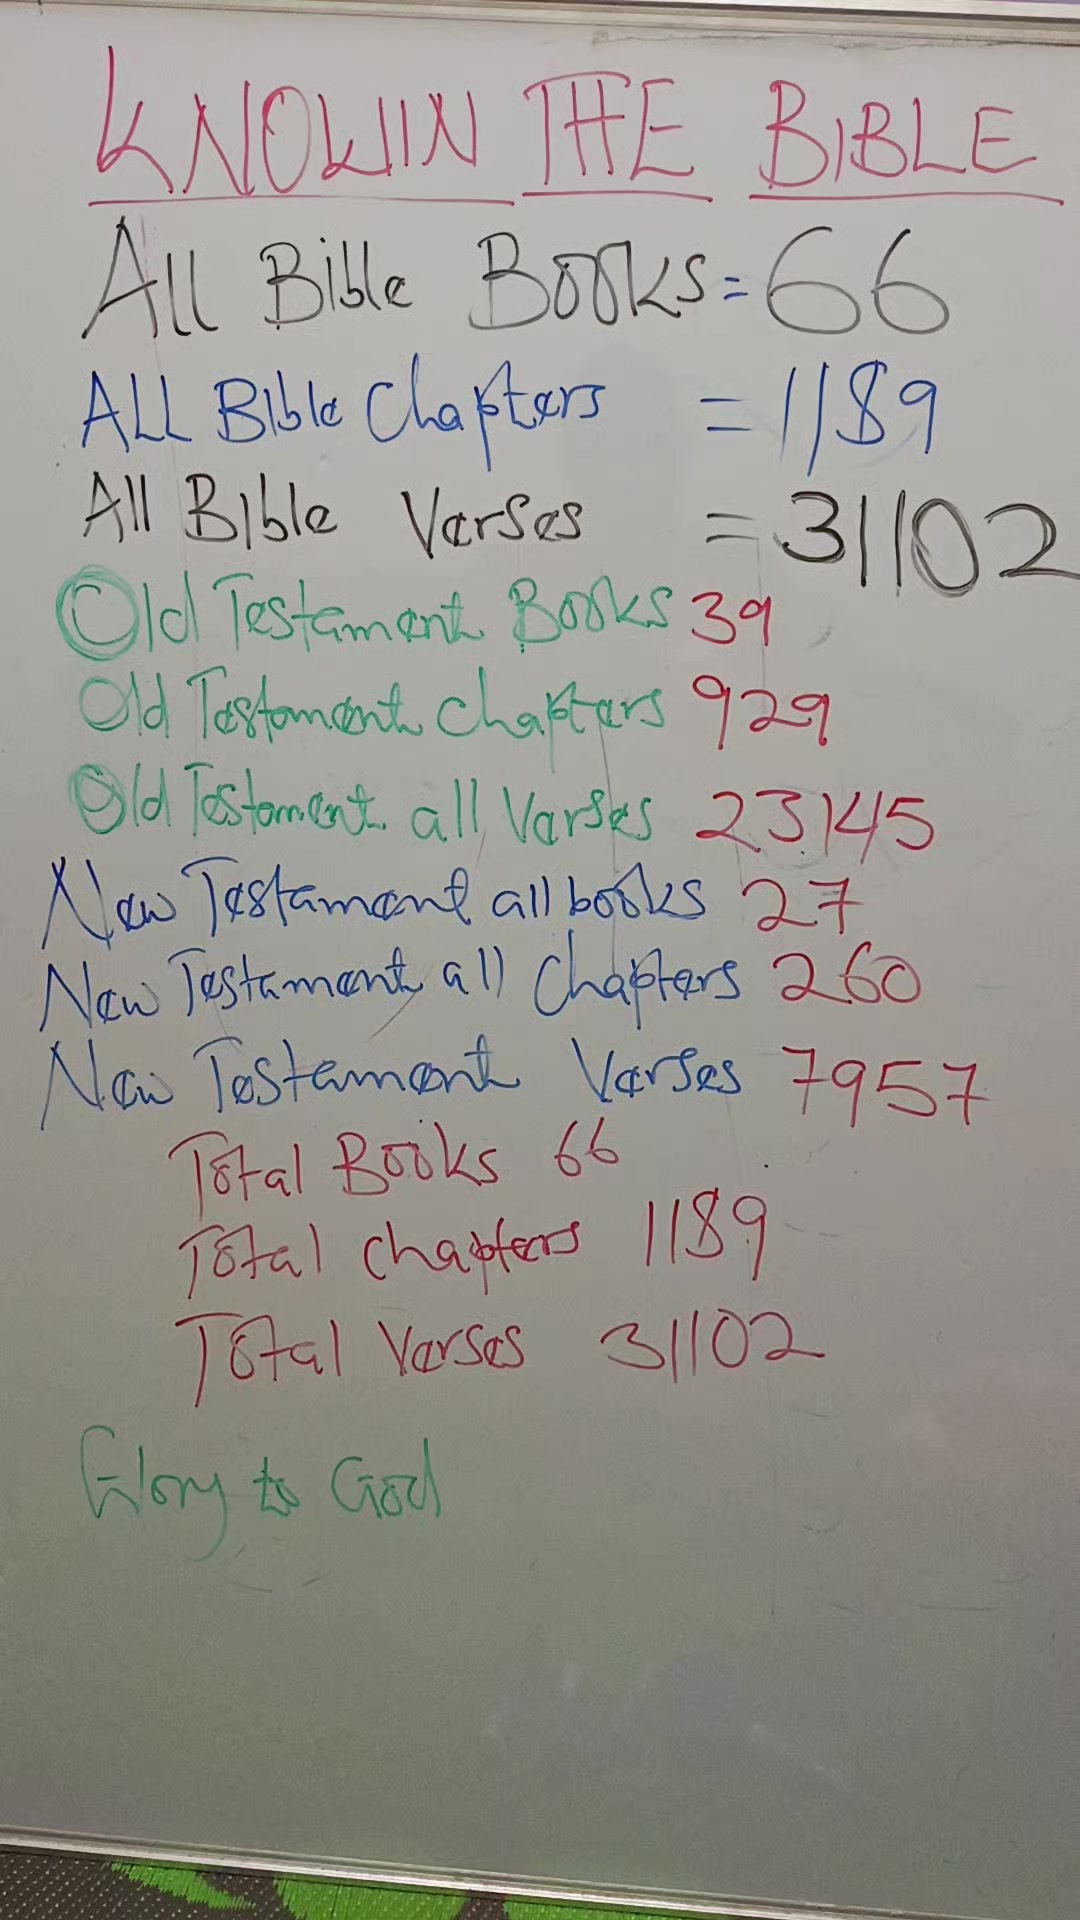 KNOWIN THE BIBLE
All Bible Books = 66
ALL Bible Chapters = 1189
All Bible Verses = 31102
Old Testament Books 39
Old Testament Chapters 929
Old Testament all Verses 23145
New Testament all books 27
New Testament all Chapters 260
New Testament Verses 7957
Total Books 66
Total chapters 1189
Total Verses 31102
Glory to God